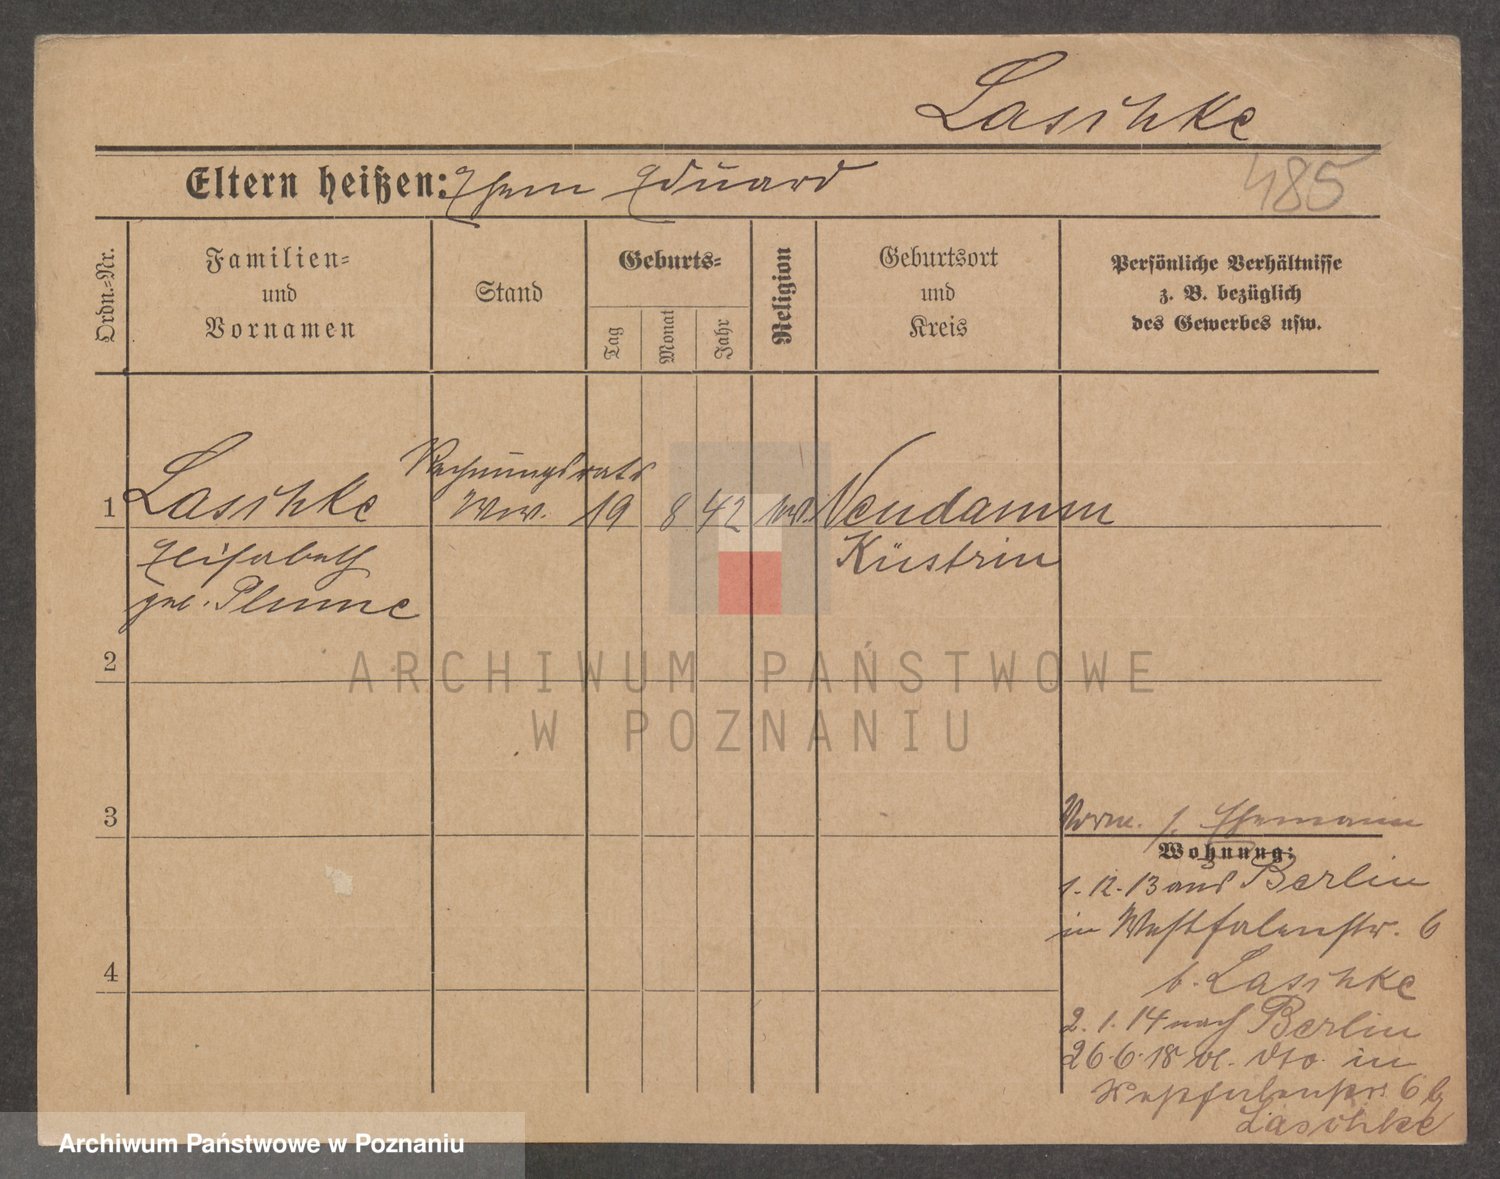 Laschke
485
Eltern heißen: Ehem Eduard
Ordn.=Nr.
Familien=
und
Vornamen
Stand
Geburts=
Tag
Monat
Jahr
Religion
Geburtsort
und
Kreis
Persönliche Verhältnisse
z. B. bezüglich
des Gewerbes usw.
Rechnungsrats
1 Laschke Ww. 19 8 42 Neudamm
Elisabeth Küstrin
geb. Plume
2
ARCHIWUM PAŃSTWOWE
W POZNANIU
3
Verm. s. Ehemann
Wohnung:
1.12.13 aus Berlin
in Westfalenstr. 6
b. Laschke
4
2.1.14 nach Berlin
26.6.18 v. dto. in
Westfalenstr. 6 b
Laschke
Archiwum Państwowe w Poznaniu